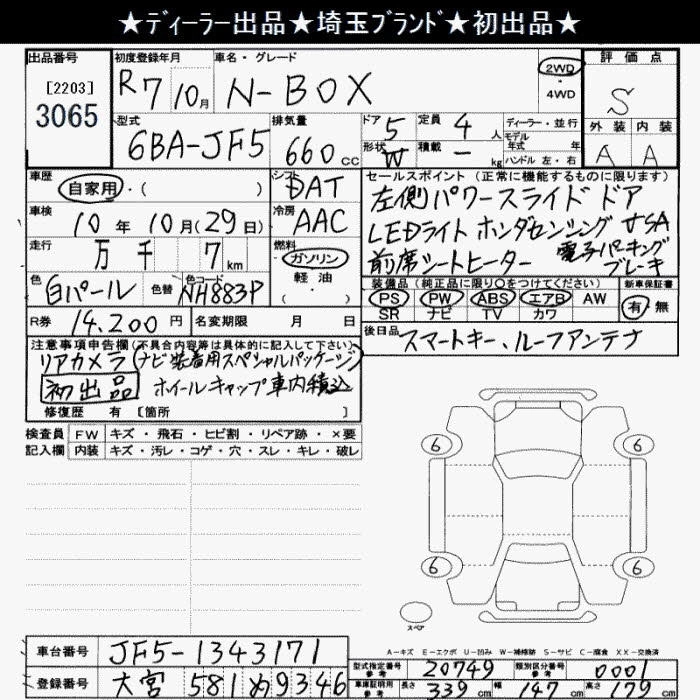 ★ディーラー出品★埼玉ブランド★初出品★
出品番号 初度登録年月 車名・グレード 評価点
[2203] R7 10月 N-BOX 2WD・4WD S
3065 外装 内装
型式 排気量 ドア 5 定員 4人 ディーラー・並行 A A
6BA-JF5 660cc 形状 W 積載 ー kg モデル年式 年式 ハンドル 左・右
車歴 シフト セールスポイント (正常に機能するものに限ります)
自家用・( ) DAT 左側パワースライドドア
車検 10年10月(29日) 冷房 AAC LEDライト ホンダセンシング USA
走行 万 千 7km 燃料 ガソリン 前席シートヒーター 電子パーキングブレーキ
軽油・( )
色 白パール 色替 色コード NH883P 装備品 (純正品に限り○をつけてください) 新車保証書
PS PW ABS エアB AW 有・無
SR ナビ TV カワ
R券 14,200円 名変期限 月 日 後日品 スマートキー、ルーフアンテナ
注意事項申告欄(不具合内容等は具体的に記入して下さい)
リアカメラ(ナビ装着用スペシャルパッケージ)
初出品 ホイールキャップ車内積込
修復歴 有 [箇所 ]
検査員 FW キズ・飛石・ヒビ割・リペア跡・×要
記入欄 内装 キズ・汚レ・コゲ・穴・スレ・キレ・破レ
6 6
6 6
スペア
A=キズ E=エクボ U=凹み W=補修跡 S=サビ C=腐食 XX=交換済
車台番号 JF5-1343171 型式指定番号 参考 20749 類別区分番号 参考 0001
登録番号 大宮 581 め9346 車庫証明用 参考 長さ 339cm 幅 147cm 高さ 179cm